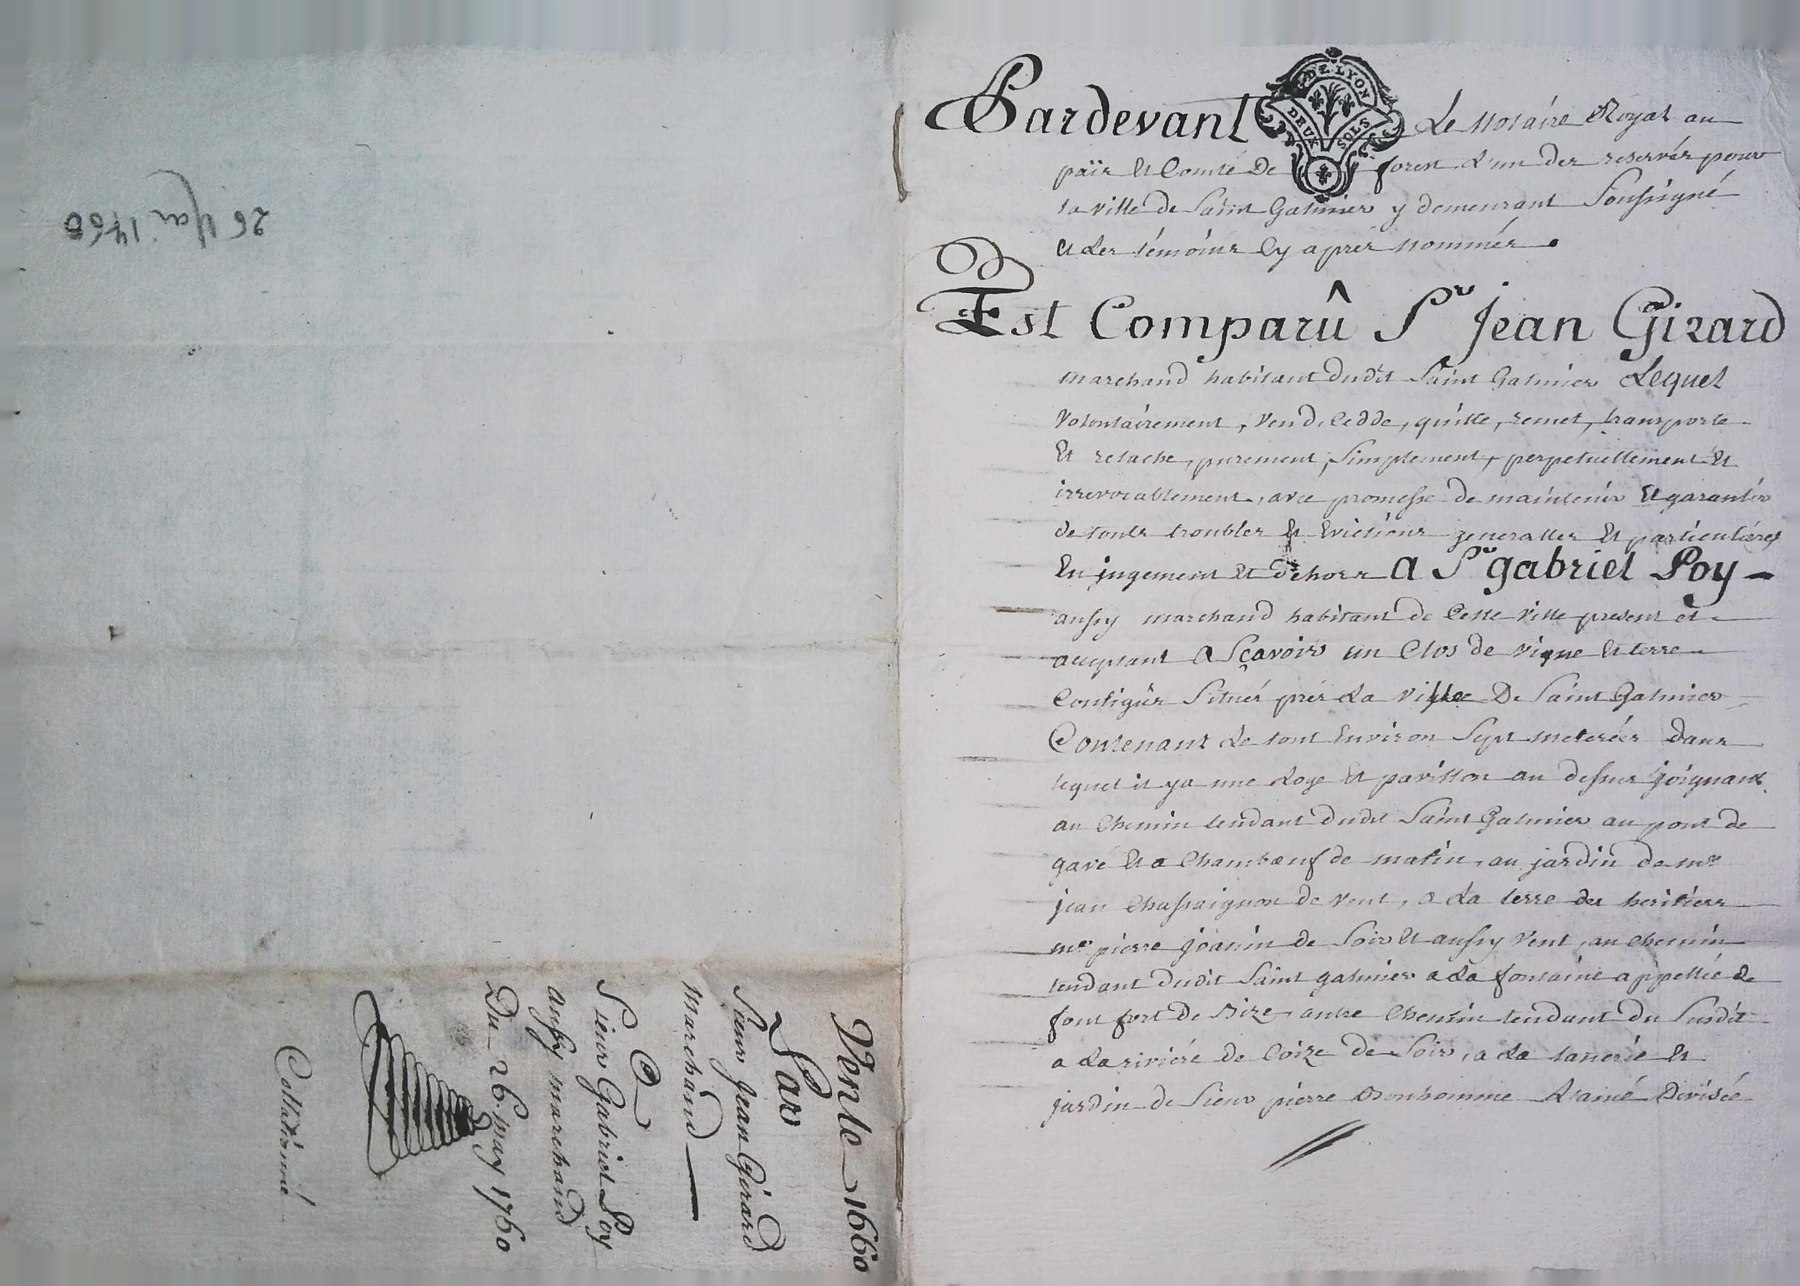 26 Mai 1760
Vente 1660
Par
Sieur Jean Girard
marchand
A
Sieur Gabriel Poy
aussy marchand
Du 26 may 1760
Collationné
Pardevant Le Notaire Royal au
DE LYON
DEUX SOLS
païs Et Comté De forest L'un des reservés pour
la ville de Saint Galmier y demeurant Soussigné
et Les témoins Cy aprés nommés
Est Comparû Sr Jean Girard
marchand habitant dudit Saint Galmier Lequel
volontairement, vend, Cedde, quitte, remet, transporte
Et relache, purement, Simplement, perpetuellement Et
irrevocablement, avec promesse de maintenir Et garantir
de touts troubles Et Evictions generalles Et particulieres
En jugement Et dehors A Sr gabriel Poy
aussy marchand habitant de Cette ville present et
acceptant A Sçavoir un Clos de vigne Et terre
Contigûs Situés prés La ville De Saint Galmier
Contenant Le tout Environ Sept meterées dans
lequel il y a une Loge Et pavillon au dessus joignant
au Chemin tendant dudit Saint Galmier au pont de
gavé Et a Chambœuf de matin, au jardin de me
jean Chassaignon de vent, a La terre des heritiers
me pierre jeanin de Soir Et aussy vent, au Chemin
tendant dudit Saint galmier a La fontaine appellée de
font fort de Bize, autre Chemin tendant du Susdit
a La riviére de Coize de Soir, a La tanerie Et
jardin de Sieur pierre Bonhomme L'ainé Divisée